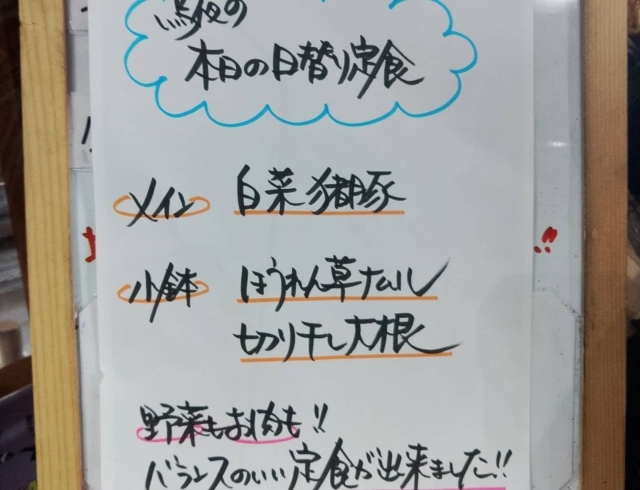 本日の日替り定食
メイン 白菜猪豚
小鉢 ほうれん草ナムル
切り干し大根
野菜もお肉も!!
バランスのいい定食が出来ました!!
!!